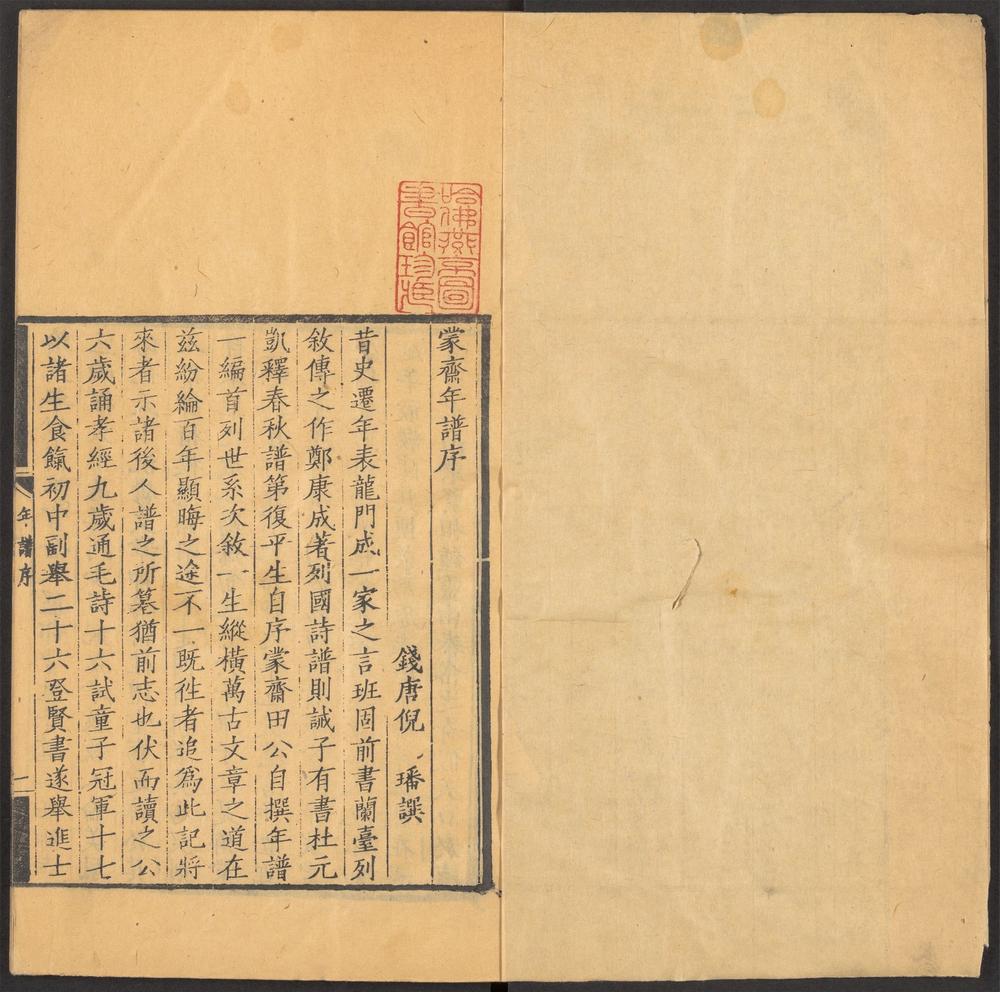 哈佛燕京圖
書館珍藏
蒙齋年譜序
錢唐倪璠譔
昔史遷年表龍門成一家之言班固前書蘭臺列
敘傳之作鄭康成著列國詩譜則誡子有書杜元
凱釋春秋譜第復平生自序蒙齋田公自撰年譜
一編首列世系次敘一生縱橫萬古文章之道在
茲紛綸百年顯晦之途不一既徃者追爲此記將
來者示諸後人譜之所篹猶前志也伏而讀之公
六歲誦孝經九歲通毛詩十六試童子冠軍十七
以諸生食餼初中副舉二十六登賢書遂舉進士
年譜序
一